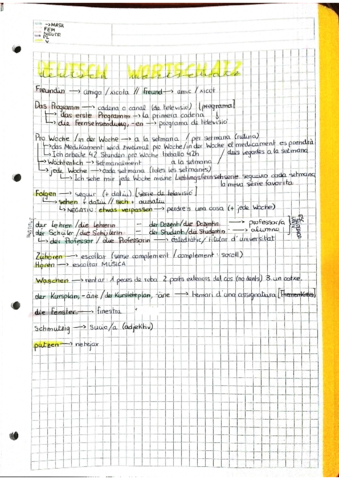 → MASK
FEM
→ NEUTE
PL
DEUTSCH WORTSCHATZ
Freundin → amiga / xicota // Freund → amic / xicot
Das Programm → cadena o canal (de televisió) [programa]
→ das erste Programm → la primera cadena
→ die Fernsehsendung, -en → programa de televisió
Pro Woche / in der Woche → a la setmana / per setmana (rutina)
→ das Medikament wird zweimal pro Woche / in der Woche el medicament es prendrà
→ Ich arbeite 42 Stunden pro Woche treballo 42h / dues vegades a la setmana
→ Wöchentlich → setmanalment a la setmana
→ jede Woche → cada setmana (totes les setmanes)
→ Ich sehe mir jede Woche meine Lieblingsfernsehserie segueixo cada setmana
la meva sèrie favorita
Folgen → seguir (+ datiu) [sèrie de televisió]
→ sehen + datiu //
→ negatiu: etwas verpassen → perdre's una cosa (+ jede Woche)
der Lehrer / die Lehrerin = der Dozent / die Dozentin → professor/a
der Schüler / die Schülerin = der Student / die Studentin → alumne/a
→ der Professor / die Professorin → catedràtic / titular d'universitat
Zuhören → escoltar (sense complement / complement: soroll)
Hören → escoltar MÚSICA
Waschen → rentar 1 peces de roba 2 parts externes del cos (no dents)
der Kursplan, -äne / → horari d'una assignatura
die Fenster → finestra
Schmutzig → brut/a (adjektiv)
putzen → netejar